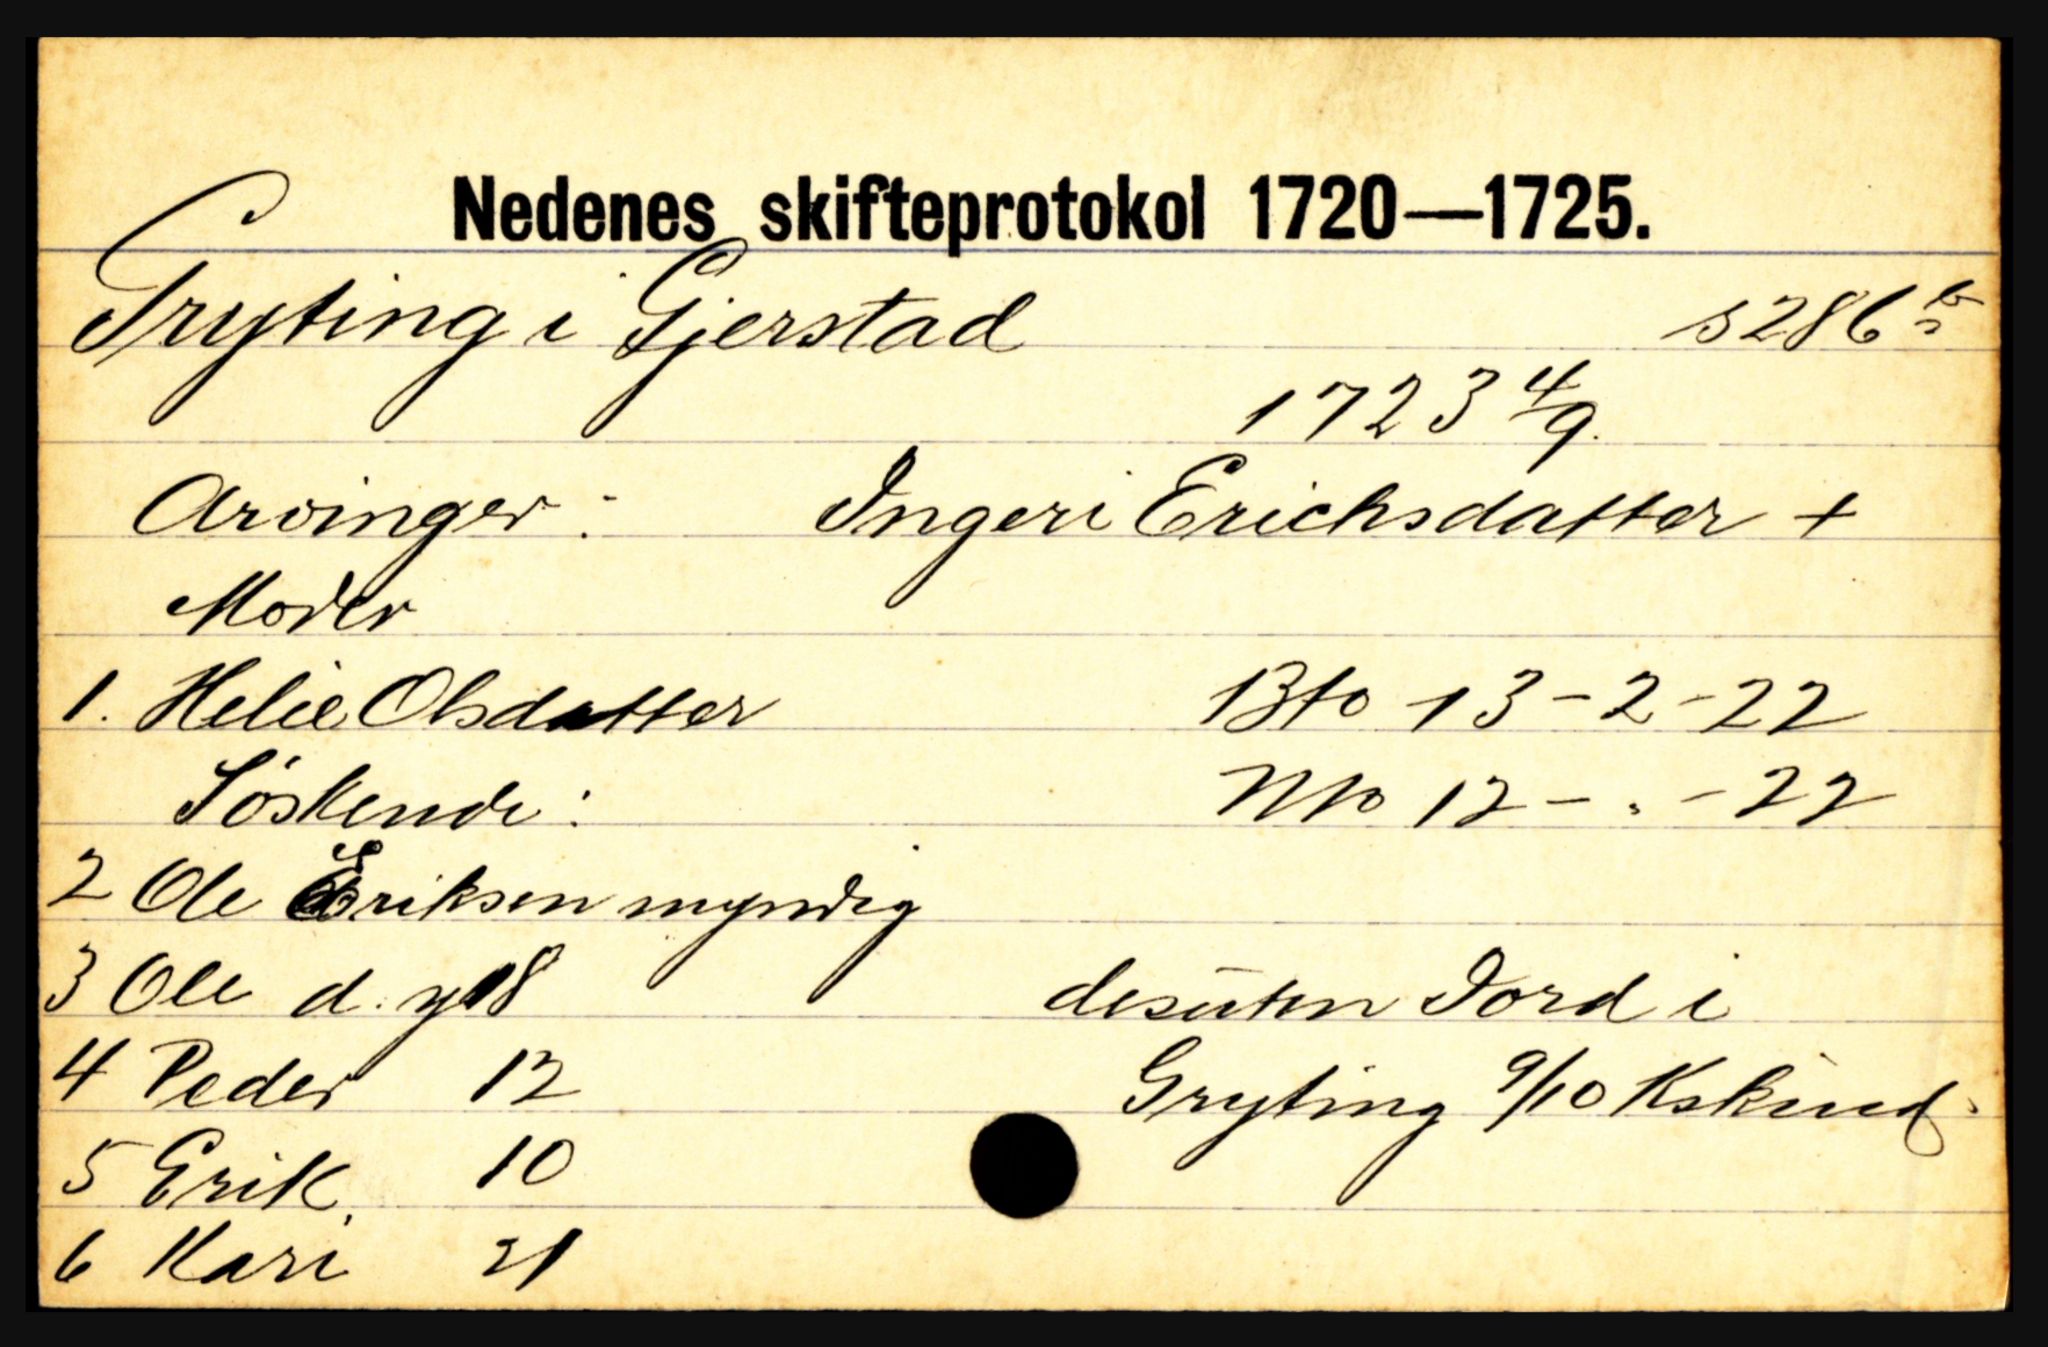 Nedenes skifteprotokol 1720—1725.
Gryting i Gjerstad s 286 b
1723 4/9.
Arvinger: Ingeri Erichsdatter +
Moder
1. Helie Olsdatter Bto 13 - 2 - 22
Søskende: Nto 12 - . - 22
2 Ole Eriksen myndig
3 Ole d. y 18 desuten Jord i
4 Peder 12 Gryting 9/10 Kskind.
5 Erik. 10
6 Kari 21